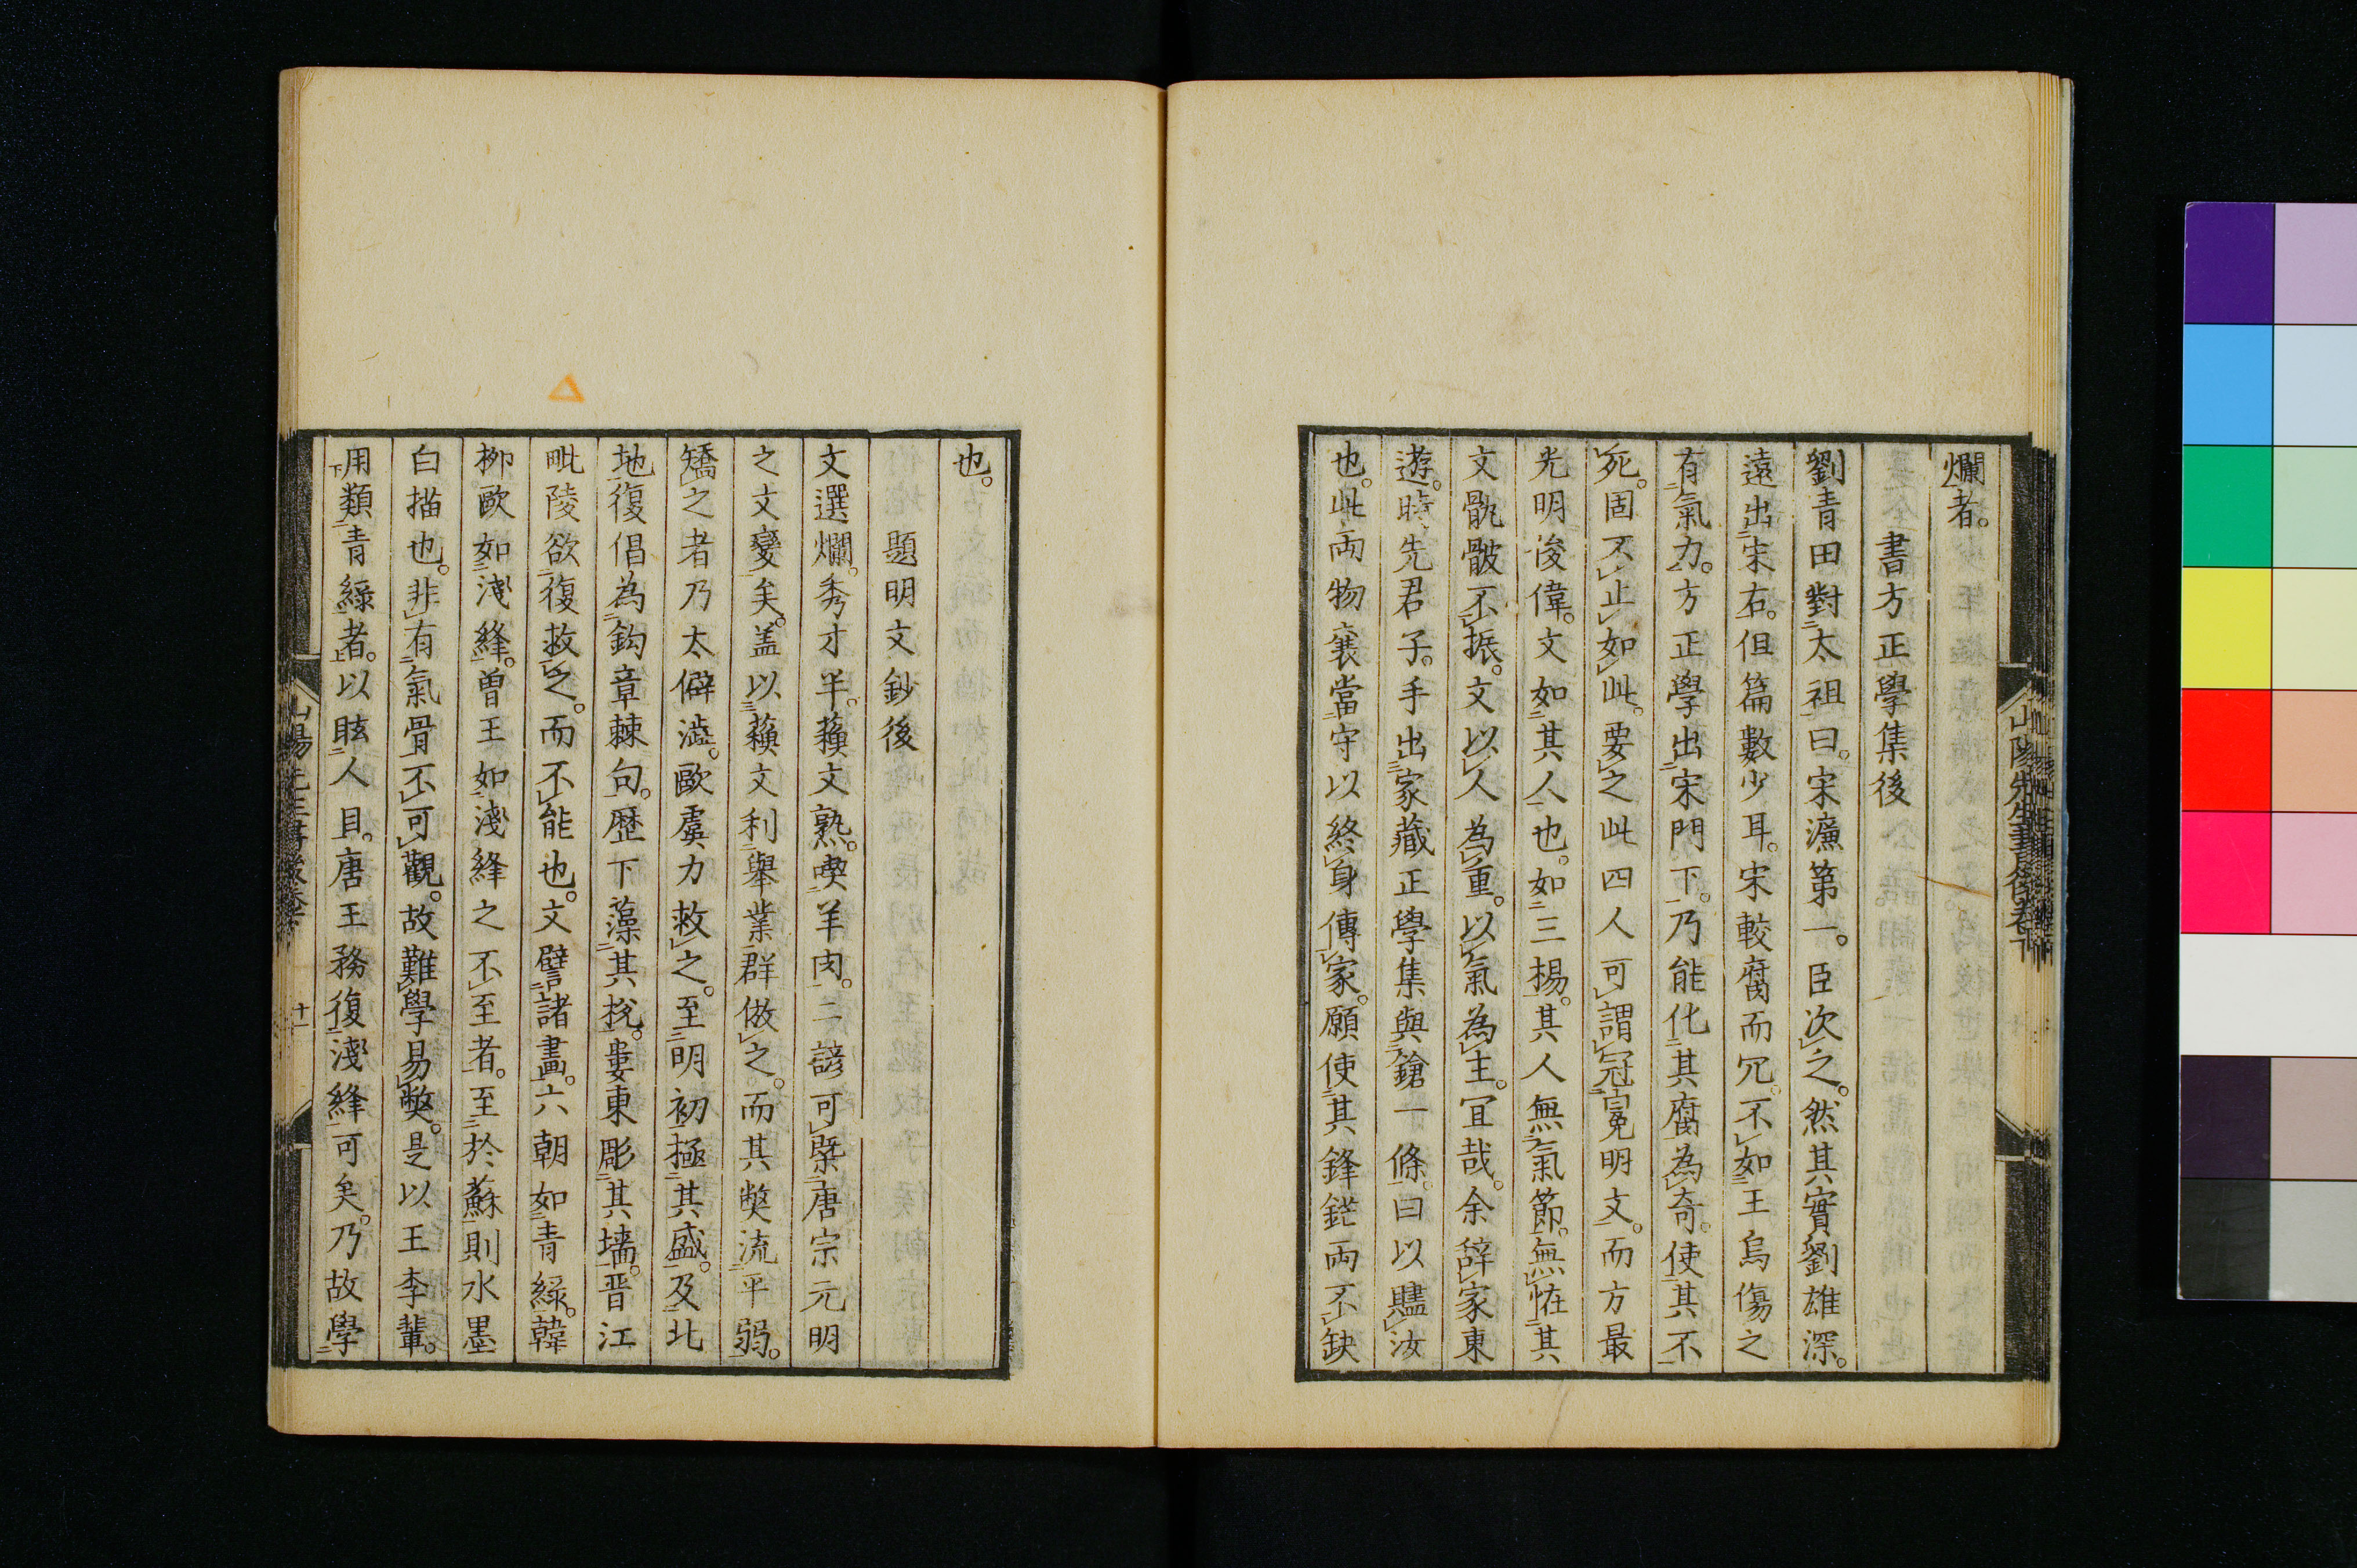 爛者。
書方正學集後
劉青田對太祖曰。宋濂第一。臣次之。然其實劉雄深。
遠出宋右。但篇數少耳。宋較腐而冗。不如王烏傷之
有氣力。方正學出宋門下。乃能化其腐為奇。使其不
死。固不止如此。要之此四人可謂冠冕明文。而方最
光明俊偉。文如其人也。如三楊。其人無氣節。無怪其
文骫骳不振。文以人為重。以氣為主。宜哉。余辭家東
遊。時先君子。手出家藏正學集與鎗一條。曰以贐汝
也。此兩物襄當守以終身傳家。願使其鋒鋩兩不缺
也。
題明文鈔後
文選爛。秀才半。蘓文熟。喫羊肉。二諺可槩唐宗元明
之文變矣。盖以蘓文利舉業群倣之。而其獘流平弱。
矯之者乃太僻澁。歐虞力救之。至明初極其盛。及北
地復倡為鈎章棘句。歷下藻其挩。婁東彫其墻。晋江
毗陵欲復救之。而不能也。文譬諸畫。六朝如青綠。韓
柳歐如淺絳。曽王如淺絳之不至者。至於蘇則水墨
白描也。非有氣骨不可觀。故難學易獘。是以王李輩。
用類青綠者。以眩人目。唐王務復淺絳可矣。乃故學
山陽先生書後卷下
山陽先生書後卷下
十一